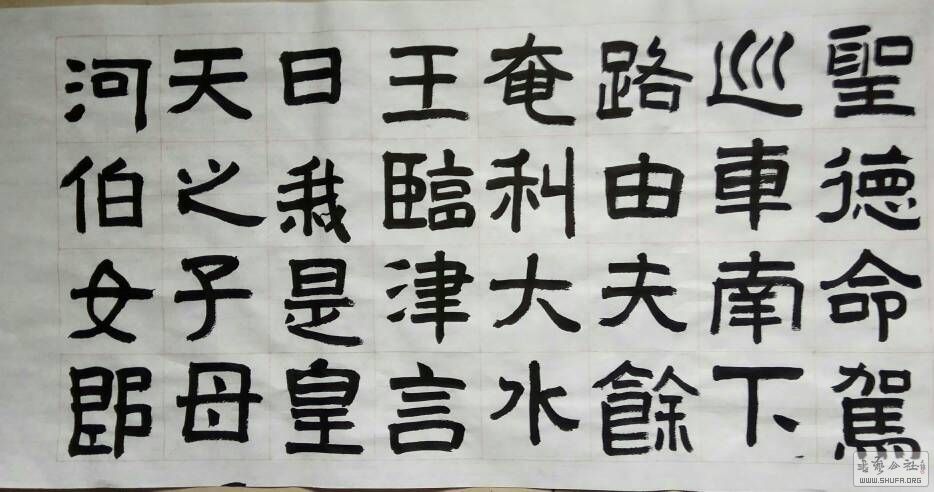 聖德命駕
巡車南下
路由夫餘
奄利大水
王臨津言
曰我是皇
天之子母
河伯女郎
WWW.SHUFA.ORG